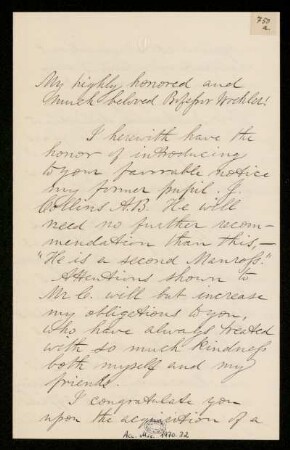 750
a.
My highly honored and
much beloved Professor Woehler!
I herewith have the
honor of introducing
to your favorable notice
my former pupil. J.
Collins A.B. He will
need no further recom-
mendation than this,—
"He is a second Manross."
Attentions shown to
Mr C. will but increase
my obligations to you,
who have always treated
with so much kindness
both myself and my
friends.
I congratulate you
upon the acquisition of a